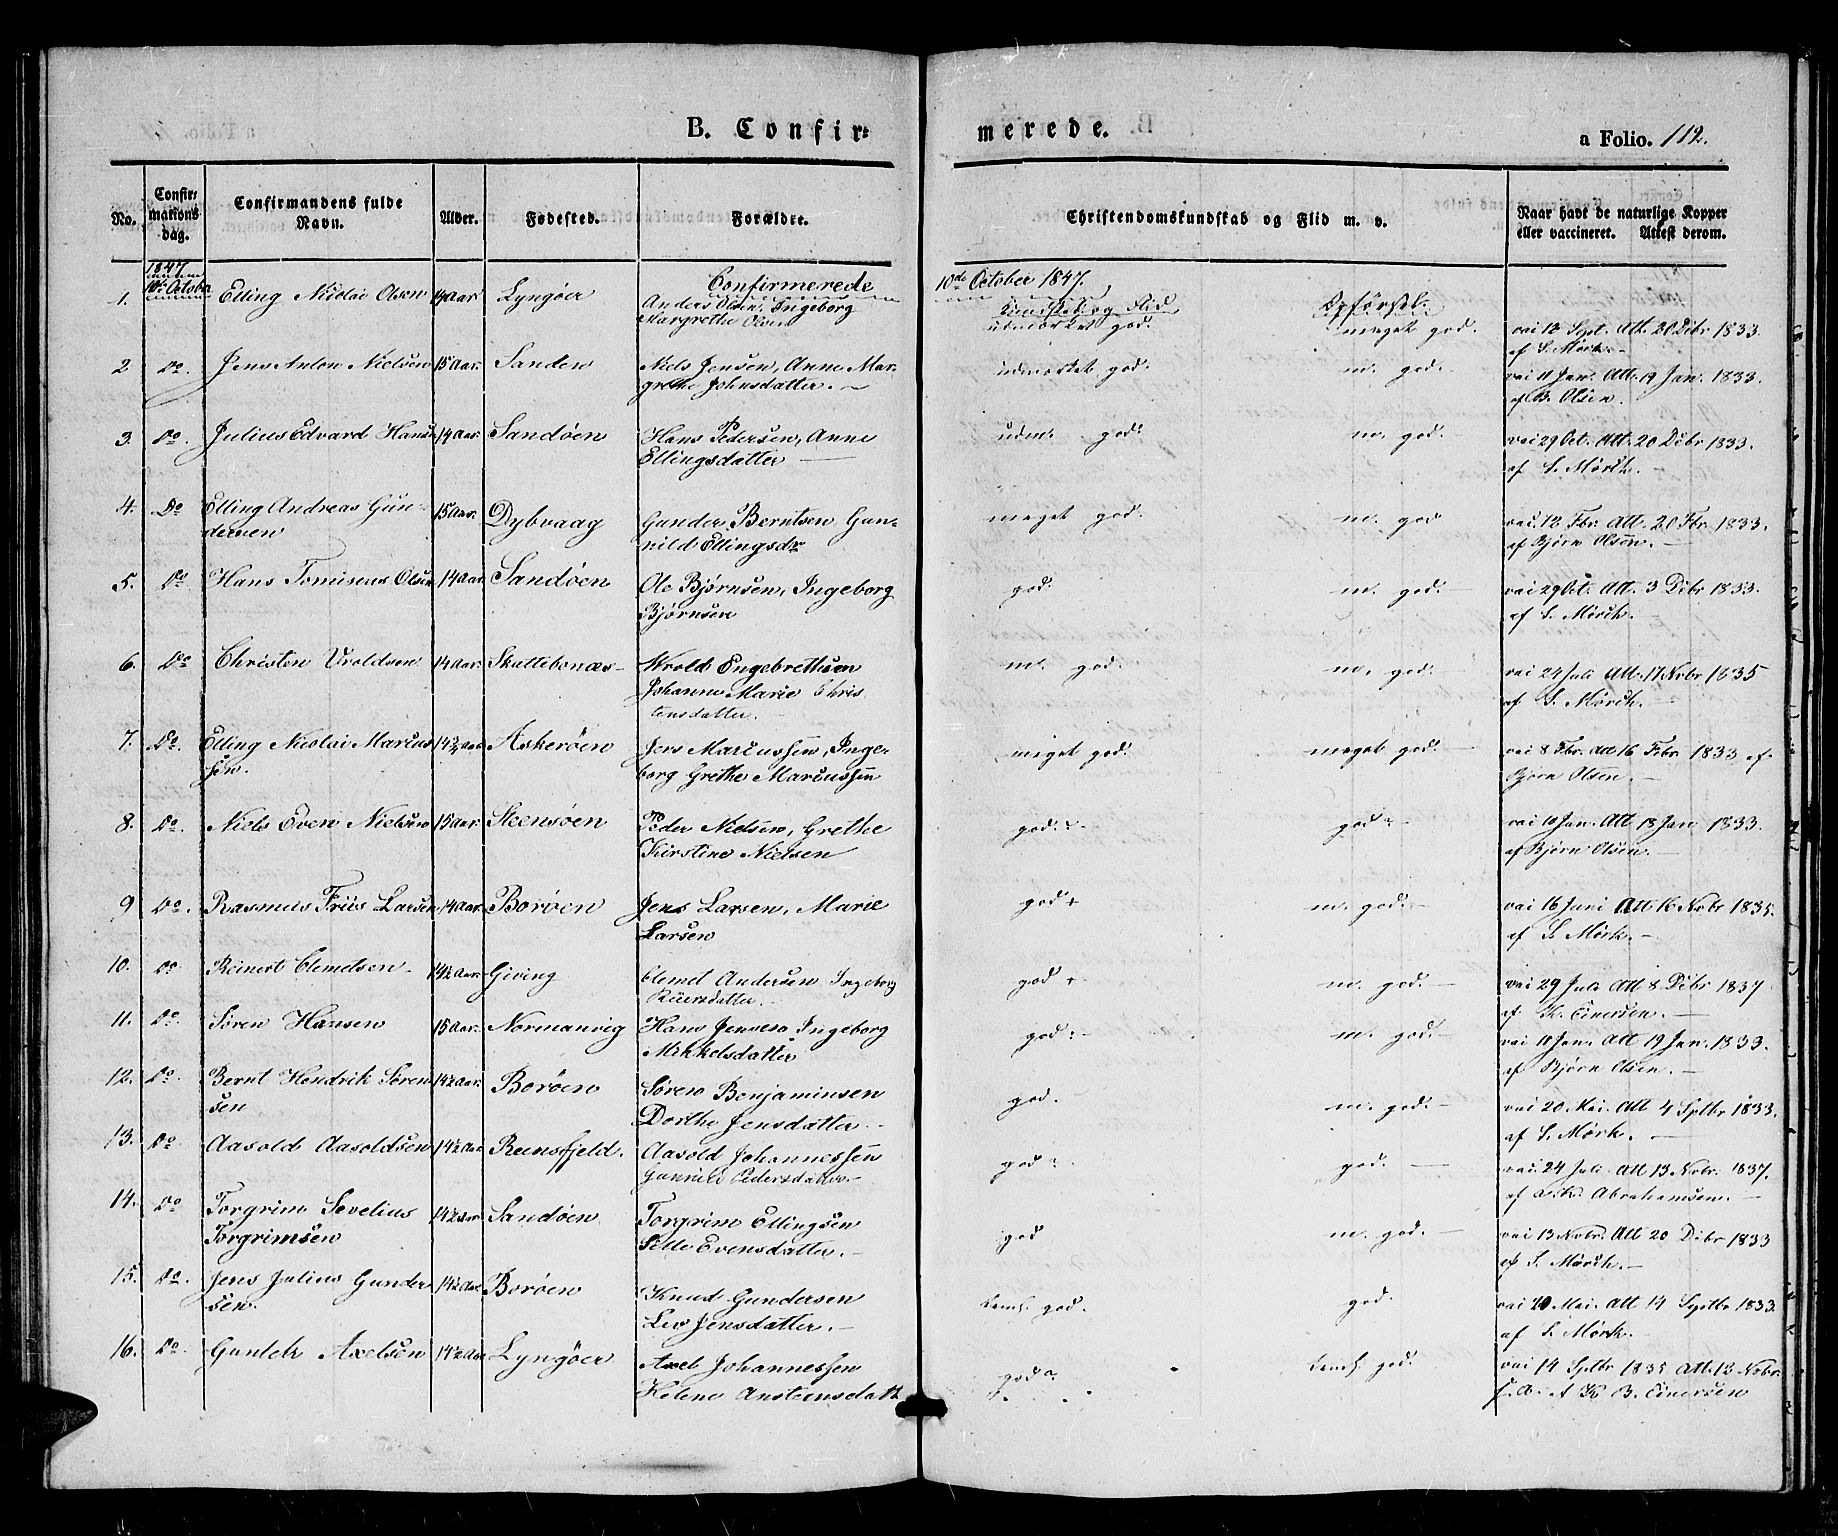 B. Confir= merede.
a Folio. 112.
No. Confir: mations dag. Confirmandens fulde Navn. Alder. Fødested. Forældre. Christendomskundskab og Flid m. v. Naar havt de naturlige Kopper eller vaccineret. Attest derom.
1847 Confirmerede 10de October 1847.
Kundskab og Flid Opførsel.
1. 10de October Elling Nicolai Olsen 14 Aar Lyngøer Anders Olsen, Ingeborg udmærket god. meget god. vai 18 Sept. Att. 20 Dcbr 1833.
Margrethe Olsen af S. Mörk.
2. Do. Jens Anton Nielsen 15 Aar. Sanden Niels Jensen, Anne Mar- udmærket god. m. god. vai 11 Jan. Att. 19 Jan. 1833.
grethe Johnsdatter. af B. Olsen.
3. Do. Julius Edvard Hansen 14 Aar. Sandöen Hans Pedersen, Anne udm. god. m. god. vai 29 Oct. Att. 20 Dcbr 1833.
Ellingsdatter af S. Mörch.
4. Do Elling Andreas Gun- 15 Aar. Dybvaag Gunder Berntsen Gun- meget god. m. god vai. 12 Fbr. Att. 20 Fbr. 1833.
dersen nild Ellingsdr af Bjørn Olsen.
5. Do Hans Tomineus Olsen 14 Aar. Sandöen Ole Bjørnsen, Ingeborg god. m. god. vai 29 Oct. Att. 3 Dcbr 1833.
Bjørnsen af S. Mörch.
6. Do Christen Uroldsen 14 Aar. Skuttebonæs Wrold Engebrethsen m. god. m. god. vai 24 Juli Att. 17 Nvbr 1835
Johanne Marie Chris af S. Mörch.
tensdatter.
7. Do. Elling Nicolai Marcus 14 3/4 Aar Askeröen Jens Marcussen, Inge- meget god. meget god. vai 8 Fbr. Att 16 Febr. 1833 af
sen. borg Grethe Marcussen Bjørn Olsen.
8. Do. Niels Even Nielsen 15 Aar. Steensöen Peder Nielsen, Grethe god. god. vai 10 Jan. Att 18 Jan 1833.
Kirstine Nielsen af Bjørn Olsen.
9 Do. Rasmus Friis Larsen 14 Aar. Boröen Jens Larsen, Marie god + m. god. vai 16 Juni Att 16 Nvbr 1835.
Larsen af S. Mörk.
10. Do Reinert Clemetsen 14½ Aar. Giving Clemet Andersen Ingeborg god + m. god. vai 29 Juli Att 8 Dcbr 1837
Reiersdatter. af K. Einersen.
11. Do. Sören Hansen 15 Aar. Normanvig Hans Jensen Ingeborg god. m. god. vai 11 Jan. Att 19 Jan. 1833.
Mikkelsdatter af Bjørn Olsen.
12. Do. Bernt Hendrik Sören 14½ Aar. Boröen Sören Benjaminsen god. m. god. vai 20. Mai. Att 4 Sptbr 1833.
sen Dorthe Jensdatter. af S. Mörk.
13. Do Aasold Aasoldsen 14½ Aar Reensfjeld. Aasold Johannessen god. god. vai. 24 Juli Att 13 Nvbr. 1837.
Gunnild Pedersdatter. af A. K. Abrahamsen.
14. Do Torgrim Sevelius 14½ Aar Sandöen Torgrim Ellingsen god m. god. vai 13 Nvbr. Att 20 Dcbr 1833
Torgrimsen Sille Evensdatter. af S. Mörch.
15. Do. Jens Julius Gunder 14½ Aar Boröen Knud Gundersen temf. god. god. vai 20 Mai. Att 14 Sptbr 1833.
sen. Liv Jensdatter. af S. Mörk.
16. Do. Gunder Axelsen 14½ Aar Lyngöer Axel Johannessen god temf. god. vai 14 Sptbr 1835 Att. 12 Nvbr.
Helene Anstensdatt B. Einersen